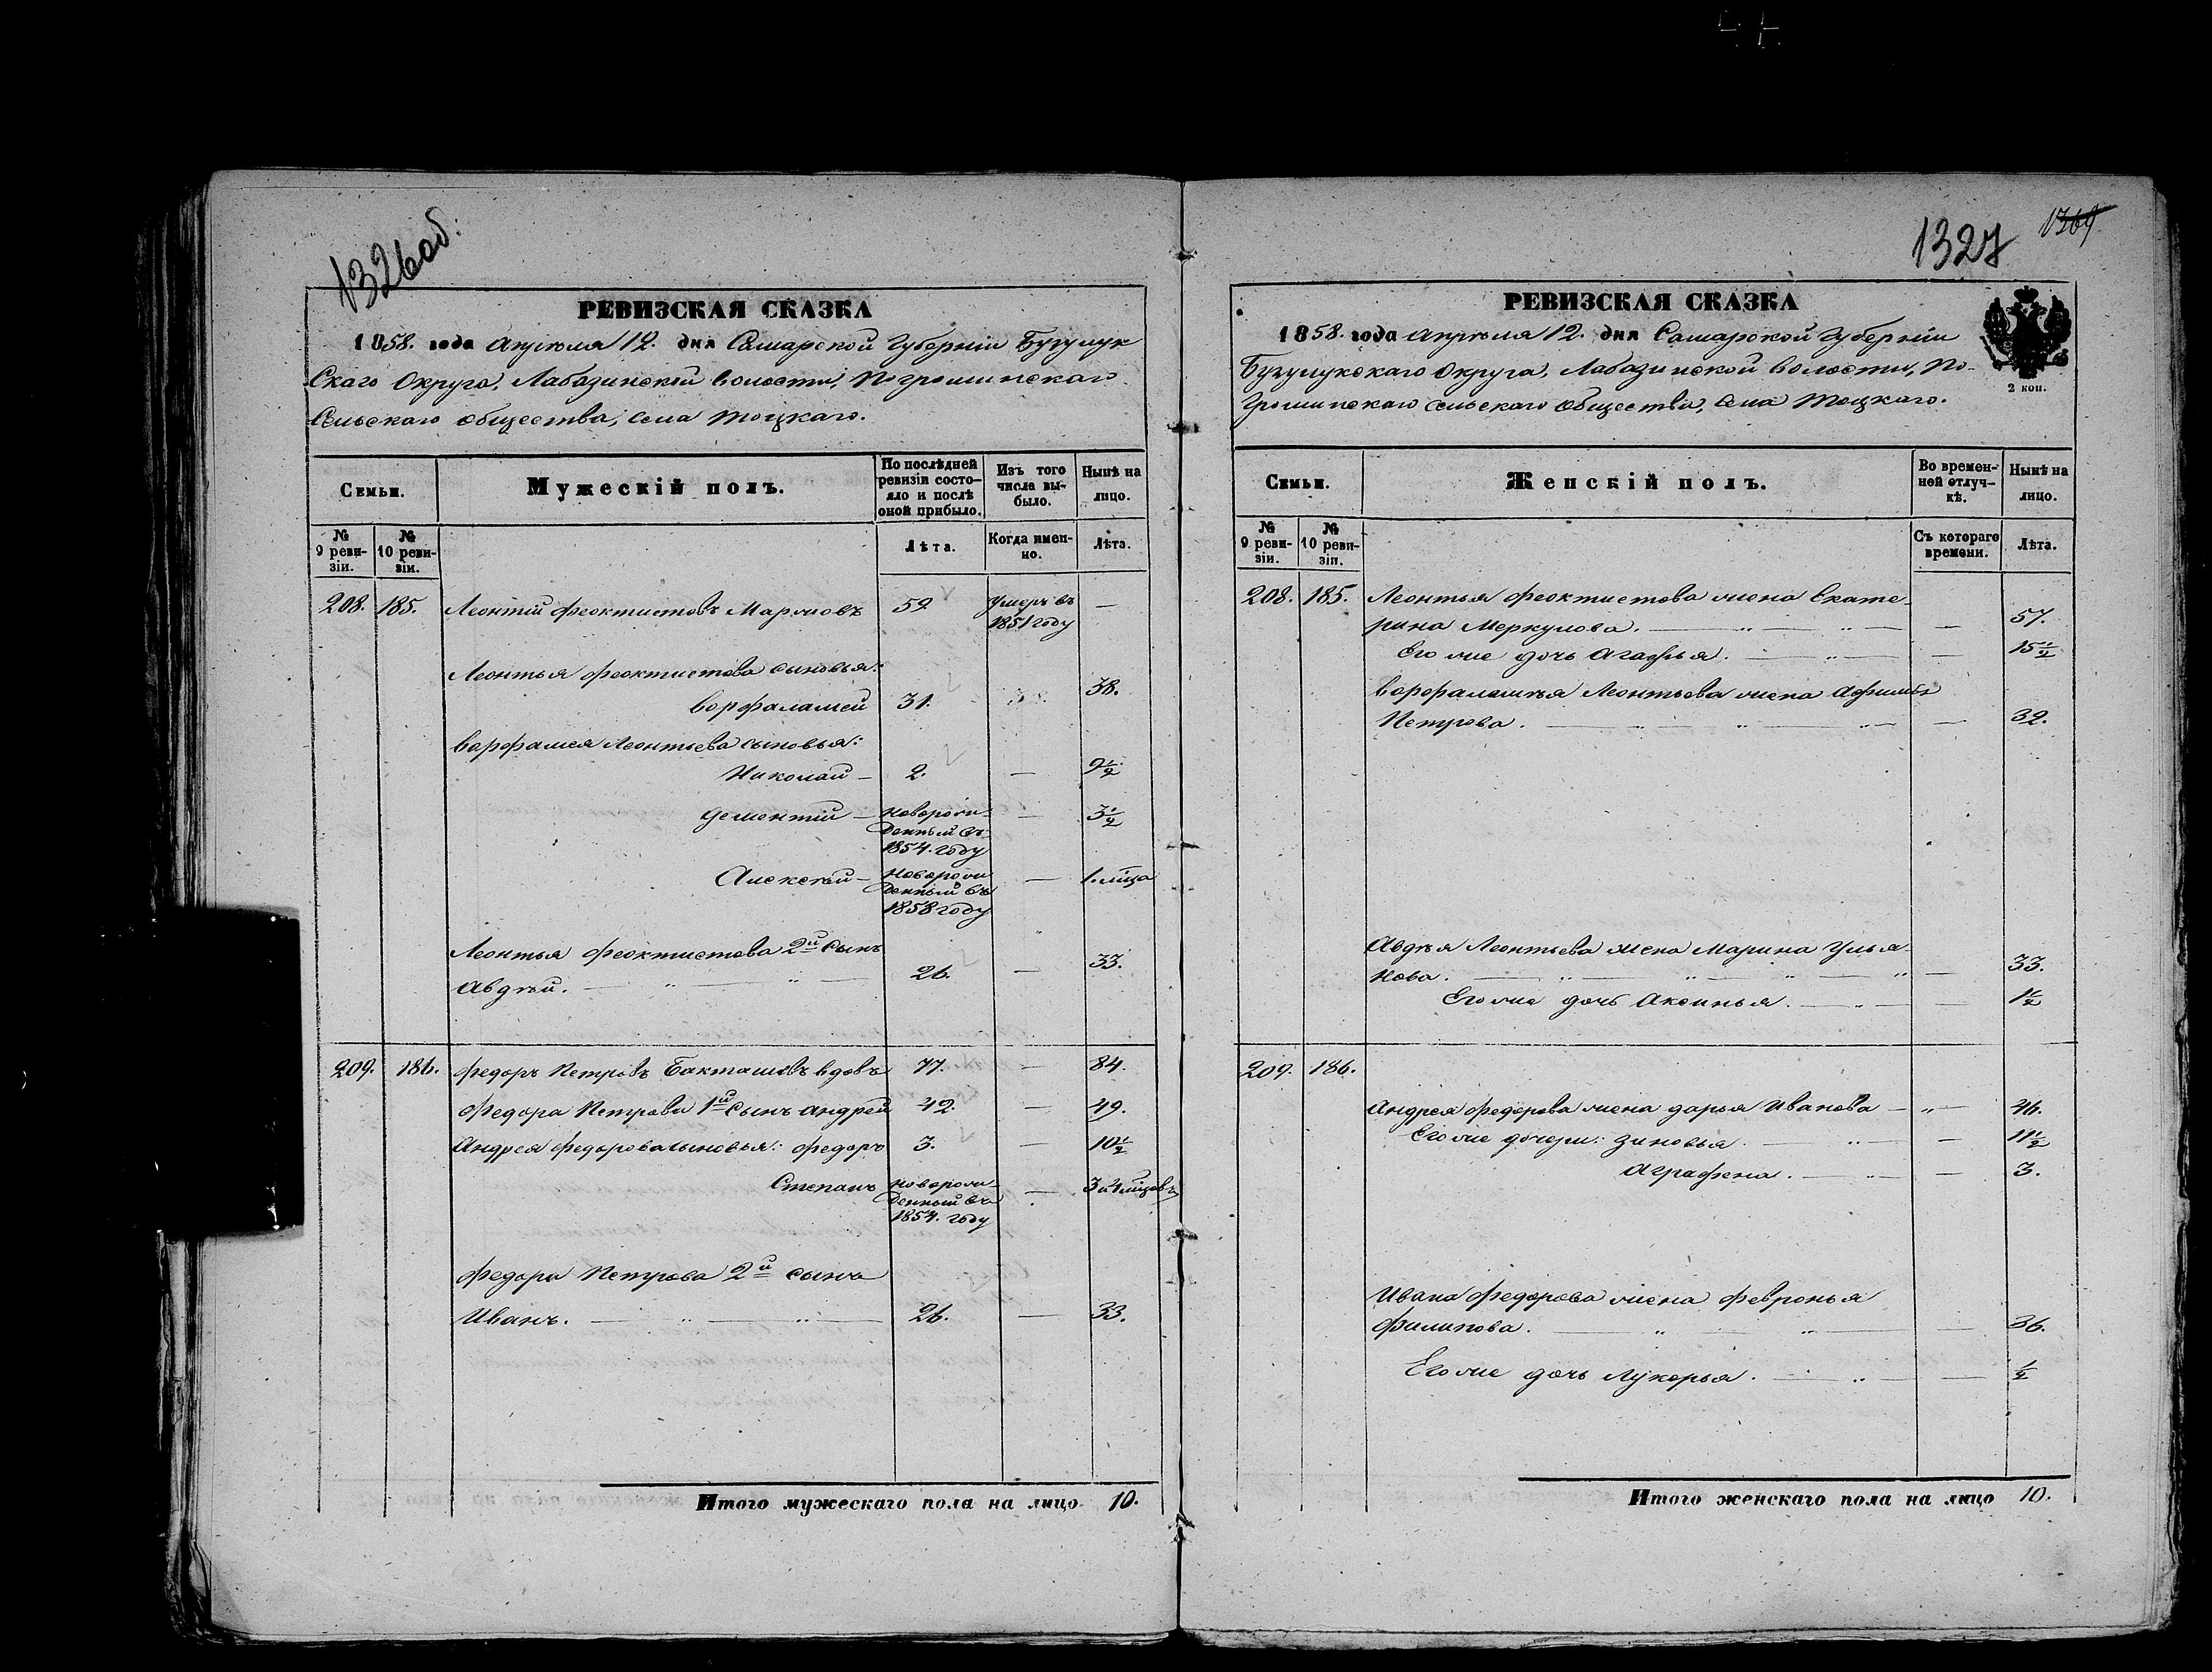 1326об.
РЕВИЗСКАЯ СКАЗКА
1858. года Апрѣля 12. дня Самарской Губерніи Бузулук
скаго Округа, Лабазинской волости, Погроминскаго
Сельскаго общества, села Тоцкаго.
Семьи.
Мужескій полъ.
По послѣдней
ревизіи состо-
яло и послѣ
оной прибыло.
Изъ того
числа вы-
было.
Нынѣ на
лицо.
№
9 реви-
зіи.
№
10 реви-
зіи.
Лѣта.
Когда имен-
но.
Лѣта.
208. 185. Леонтій Феоктистовъ 52 Умеръ въ —
1851 году
Леонтья Феоктистова сыновья:
Ворфаламей 31. 38.
Ворфамея Леонтьева сыновья:
Николай — 2. — 9 1/2
Дементій — новорож- — 3 1/2
денный въ
1854. году
Алексѣй — новорож — 1. мѣца
денный въ
1858 году
Леонтья Феоктистова 2й сынъ
Авдѣй. 26. — 33.
209. 186. Федоръ Петровъ Бакташовъ вдовъ 77. — 84.
Федора Петрова 1й сынъ Андрей 42. — 49.
Андрея Федорова сыновья: Федоръ 3. — 10 1/2
Степанъ новорож- — 3 и 4 мѣцовъ
денный въ
1854. году
Федора Петрова 2й сынъ
Иванъ. 26. — 33.
Итого мужескаго пола на лицо 10.
1327 1369
РЕВИЗСКАЯ СКАЗКА
1858. года Апрѣля 12. дня Самарской Губерніи
Бузулукскаго Округа, Лабазинской волости, По-
громинскаго сельскаго общества, села Тоцкаго.
2 коп.
Семьи.
Женскій полъ.
Во времен-
ной отлуч-
кѣ.
Нынѣ на
лицо.
№
9 реви-
зіи.
№
10 реви-
зіи.
Съ котораго
времени.
Лѣта.
208. 185. Леонтья Феоктистова жена Екате-
рина Меркулова. — 57.
Его же дочь Агафья. — 15 1/2
Ворфаламѣя Леонтьева жена Афимья
Петрова. — 32.
Авдѣя Леонтьева жена Марина Улья-
нова. — 33.
Его же дочь Аксинья. — 1 1/2
209. 186.
Андрея Федорова жена Дарья Иванова — 46.
Его же дочери: Зиновья. — 11 1/2
Аграфена. — 3.
Ивана Федорова жена Февронья
Филипова. — 36.
Его же дочь Лукерья. — 1/2
Итого женскаго пола на лицо 10.